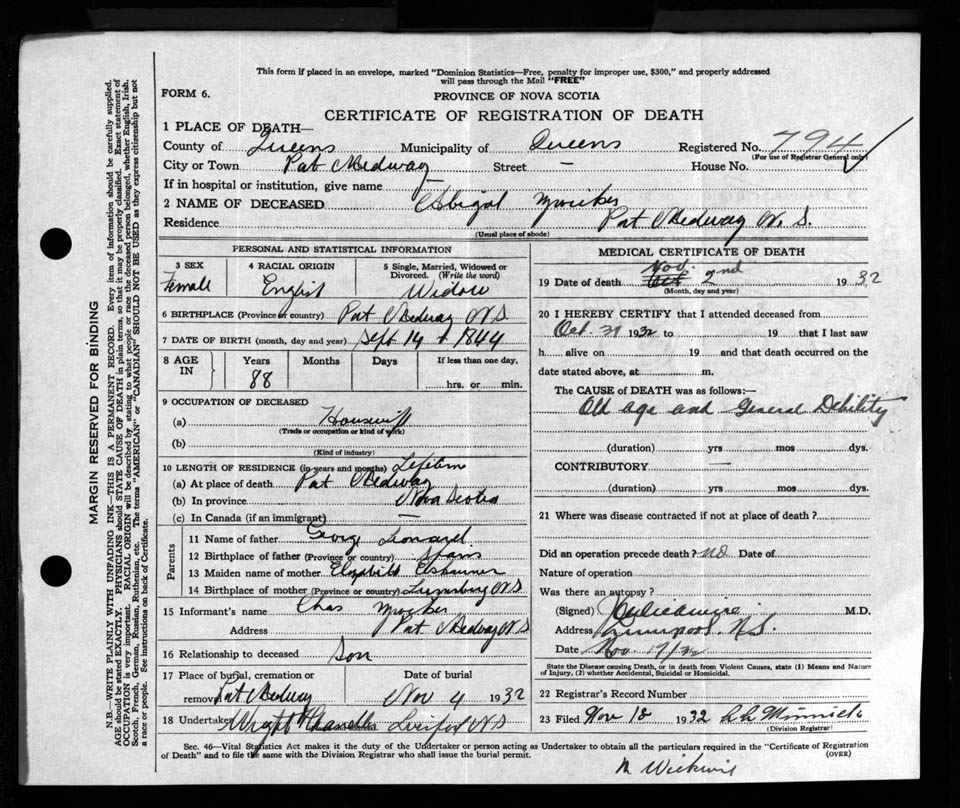 This form if placed in an envelope, marked "Dominion Statistics—Free, penalty for improper use, $300," and properly addressed
will pass through the Mail "FREE"
FORM 6.
PROVINCE OF NOVA SCOTIA
CERTIFICATE OF REGISTRATION OF DEATH
1 PLACE OF DEATH—
County of Queens Municipality of Queens Registered No. 794
(For use of Registrar General only)
City or Town Pat Medway Street — House No.
If in hospital or institution, give name —
2 NAME OF DECEASED Abigal Zwicker
Residence Pat Medway N. S.
(Usual place of abode)
PERSONAL AND STATISTICAL INFORMATION
3 SEX Female
4 RACIAL ORIGIN English
5 Single, Married, Widowed or Divorced. (Write the word) Widow
6 BIRTHPLACE (Province or country) Pat Medway N.S.
7 DATE OF BIRTH (month, day and year) Sept 14 1844
8 AGE IN Years 88 Months Days If less than one day, hrs. or min.
9 OCCUPATION OF DECEASED
(a) Housewiff
(Trade or occupation or kind of work)
(b)
(Kind of industry)
10 LENGTH OF RESIDENCE (in years and months) Lifetim
(a) At place of death Pat Medway
(b) In province Nova Scotia
(c) In Canada (if an immigrant) —
Parents
11 Name of father George
12 Birthplace of father (Province or country)
13 Maiden name of mother
14 Birthplace of mother (Province or country) Lunenburg N.S.
15 Informant's name Chas Zwicker
Address Pat Medway N S
16 Relationship to deceased Son
17 Place of burial, cremation or removal Pat Medway
Date of burial Nov 4 1932
18 Undertaker Wright N S
MEDICAL CERTIFICATE OF DEATH
19 Date of death Oct Nov. 2nd 1932
(Month, day and year)
20 I HEREBY CERTIFY that I attended deceased from
Oct. 31 1932 to 19 that I last saw
h alive on 19 and that death occurred on the
date stated above, at m.
The CAUSE of DEATH was as follows:—
Old age and General Debility
(duration) yrs mos dys.
CONTRIBUTORY —
(duration) yrs mos dys.
21 Where was disease contracted if not at place of death?
Did an operation precede death? no Date of
Nature of operation
Was there an autopsy?
(Signed) M.D.
Address Liverpool, N.S.
Date Nov. 17/32
State the Disease causing Death, or in death from Violent Causes, state (1) Means and Nature
of Injury, (2) whether Accidental, Suicidal or Homicidal.
22 Registrar's Record Number
23 Filed Nov 18 1932
(Division Registrar)
Sec. 46—Vital Statistics Act makes it the duty of the Undertaker or person acting as Undertaker to obtain all the particulars required in the "Certificate of Registration
of Death" and to file the same with the Division Registrar who shall issue the burial permit.
(OVER)
MARGIN RESERVED FOR BINDING
N.B.—WRITE PLAINLY WITH UNFADING INK—THIS IS A PERMANENT RECORD. Every item of information should be carefully supplied.
AGE should be stated EXACTLY. PHYSICIANS should STATE CAUSE OF DEATH in plain terms, so that it may be properly classified. Exact statement of
OCCUPATION is very important. RACIAL ORIGIN will be described by stating to what people or race the deceased person belonged, whether English, Irish,
Scotch, French, German, Russian, Ruthenian, etc. The terms "AMERICAN" or "CANADIAN" SHOULD NOT BE USED as they express citizenship but not
a race or people. See instructions on back of Certificate.